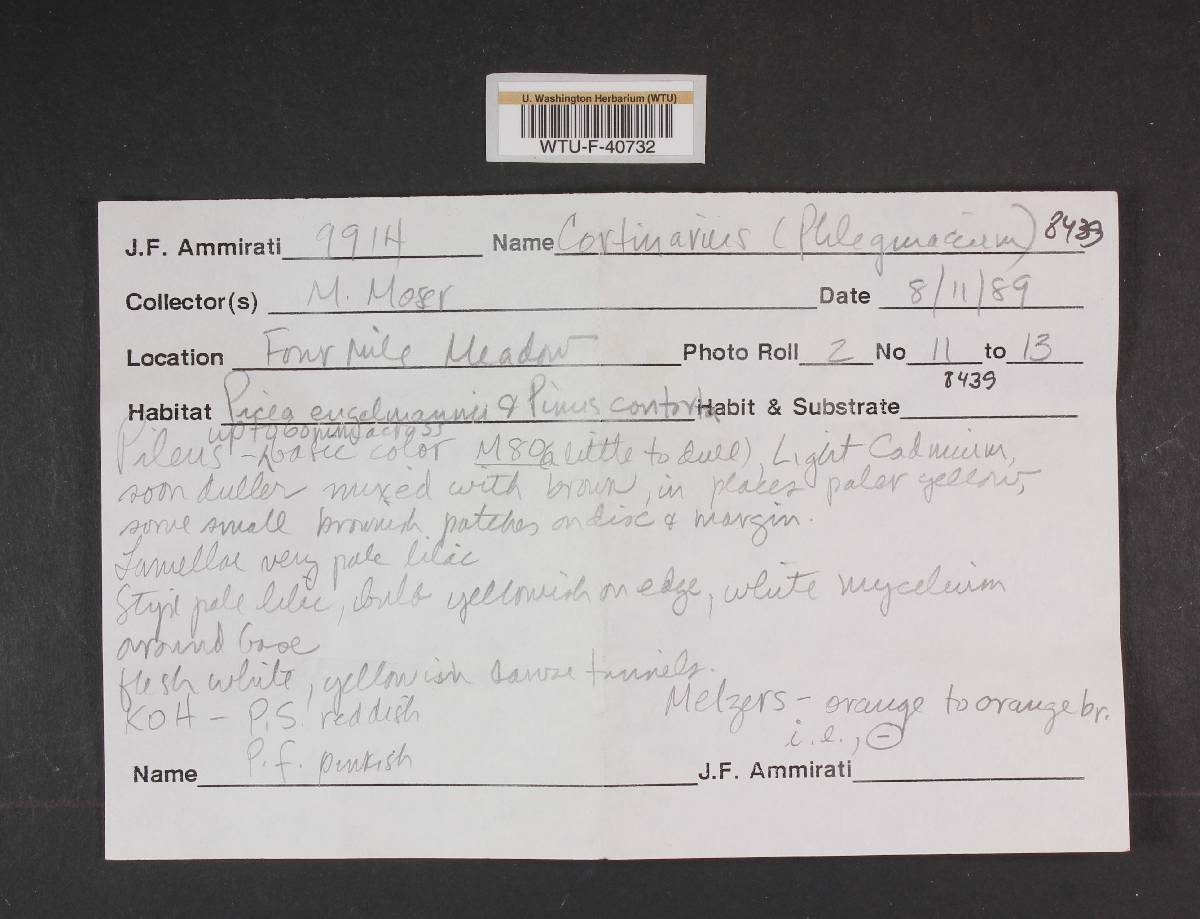 U. Washington Herbarium (WTU)
WTU-F-40732
J.F. Ammirati 9914 Name Cortinarius (Phlegmacium) 8439
Collector(s) M. Moser Date 8/11/89
Location Four Mile Meadow Photo Roll 2 No 11 to 13
8439
Habitat Picea engelmannii & Pinus contorta Habit & Substrate
up to 60 mm across
Pileus - basic color M80 (a little to dull), Light Cadmium,
soon duller mixed with brown, in places paler yellow,
some small brownish patches on disc & margin.
Lamellae very pale lilac
Stipe pale lilac, bulb yellowish on edge, white mycelium
around base
flesh white, yellowish larvae tunnels.
KOH - P.S. reddish Melzers - orange to orange br.
i.e., ⊖
P.f. pinkish
Name J.F. Ammirati